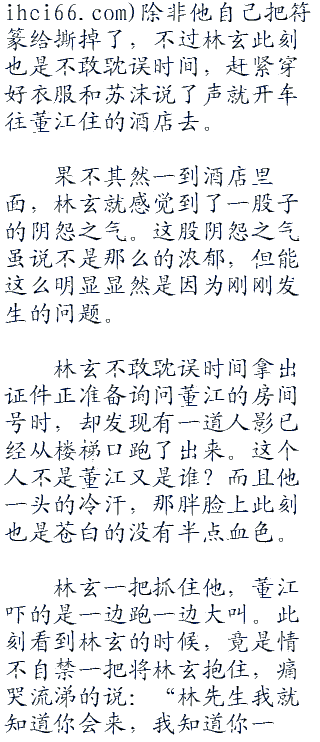 ihci66.com)除非他自己把符
篆给撕掉了，不过林玄此刻
也是不敢耽误时间，赶紧穿
好衣服和苏沫说了声就开车
往董江住的酒店去。
果不其然一到酒店里
面，林玄就感觉到了一股子
的阴怨之气。这股阴怨之气
虽说不是那么的浓郁，但能
这么明显显然是因为刚刚发
生的问题。
林玄不敢耽误时间拿出
证件正准备询问董江的房间
号时，却发现有一道人影已
经从楼梯口跑了出来。这个
人不是董江又是谁？而且他
一头的冷汗，那胖脸上此刻
也是苍白的没有半点血色。
林玄一把抓住他，董江
吓的是一边跑一边大叫。此
刻看到林玄的时候，竟是情
不自禁一把将林玄抱住，痛
哭流涕的说：“林先生我就
知道你会来，我知道你一